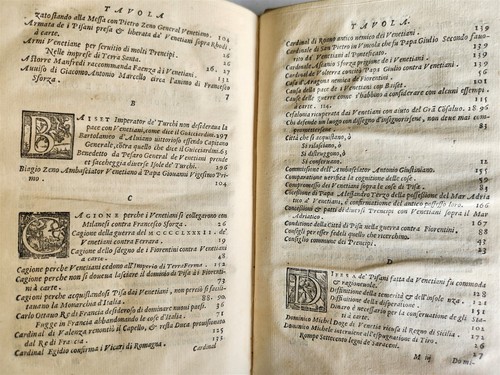 TAVOLA
zatostando alla Messa con Pietro Zeno General Venetiano. 104
Armata de i Pisani presa & liberata da' Venetiani sopra Rhodi
à carte. 26
Armi Venetiane per seruitio di molti Prencipi.
Nelle imprese di Terra Santa. 26
Astorre Manfredi raccommanda Faenza di Venetiani. 17
Auuiso di Giacomo Antonio Marcello circa l'animo di Francesco
Sforza. 7
B
BAISET Imperator de' Turchi non desideraua la
pace con Venetiani come dice il Guicciardini. 297
Bartolameo d'Aluiano vittorioso essendo Capitano
Generale, côtra quello che dice il Guicciardini. 65
Benedetto da Pesaro General de' Venetiani prende
et saccheggia diuerse Isole de' Turchi. 196
Biagio Zeno Ambasciator Venetiano à Papa Giouanni Vigesimo Primo. 104
C
CAGIONE perche i Venetiani si collegarono con
Milanesi contra Francesco Sforza. 26
Cagione della guerra del MCCCCLXXXII. de'
Venetiani contra Ferrara. 19
Cagione dello sdegno de i Fiorentini contra Venetiani
à carte. 48
Cagione perche Venetiani cedono all'Imperio di Terra Ferma.
Cagione perche non si doueua lasciare il dominio di Pisa à i Fiorentini
à carte. 73
Cagioni perche acquistandosi Pisa da i Venetiani, non perciò si faceuano
la Monarchia d'Italia. 88. 90
Carlo Ottauo Re di Francia desideroso di dominare nuoui paesi.
Fugge in Francia abbandonando le cose d'Italia. 71
Cardinal di Valenza renontiò il Capello, & resta Duca
dal Re di Francia. 135
Cardinal Egidio confirma i Vicari di Romagna.
Cardinal
TAVOLA.
Cardinal di Roano antico nemico dei Venetiani. 139
Cardinal di San Pietro in Vincola che fu Papa Giulio Secondo
Cardinale Ascanio Sforza prigione de i Venetiani.
Cardinal di Volterra concita Papa Giulio contra Venetiani.
Casa d'Aragona nemica de' Fiorentini.
Causa della pace de i Venetiani con Baiset.
Cause delle guerre come s'habbino à considerare con alcuni essempi
à carte. 114
Cefalonia ricuperata da i Venetiani con aiuto del Grā Cōsaluo.
Chi defende un luogo con disegno d'insignorirsene, non deue mai
Città che si acquistano, ò
Si rilasciano, ò
Si destruggono, ò
Si conseruano. 125
Commissione dell'Ambasciator Antonio Giustiniano. 155
Comparatione uerifica la cognitione delle cose.
Compromesso de i Venetiani sopra le cose di Pisa. 131
Concessione di Papa Alessandro Terzo della possessione del Mar Adriatico
à Venetiani, è confirmatione del antico possesso loro. 106
Concessioni & patti di diuersi Prencipi con Venetiani sopra il Mar
Adriatico. 167
Conditione della Città di Pisa sotto il gouerno de i Fiorentini. 88
Consigli per esser fedeli quello che ricerchino.
Consiglio commune dei Prencipi.
D
DIFESA de' Pisani fatta da Venetiani fu commoda
& ragioneuole. 128
Diffinitione della temerità & dell'insolenza. 121
Diffinitione della desperatione. 121
Dissimulatione è necessaria per la conseruatione de gli Stati. 151
Domenico Michel Doge di Venetia ricusa il Regno di Sicilia. 16
Domenico Michele interuiene all'espugnatione di Tiro.
Rompe Settecento legni de' Saraceni. 27
M iij Do mi-